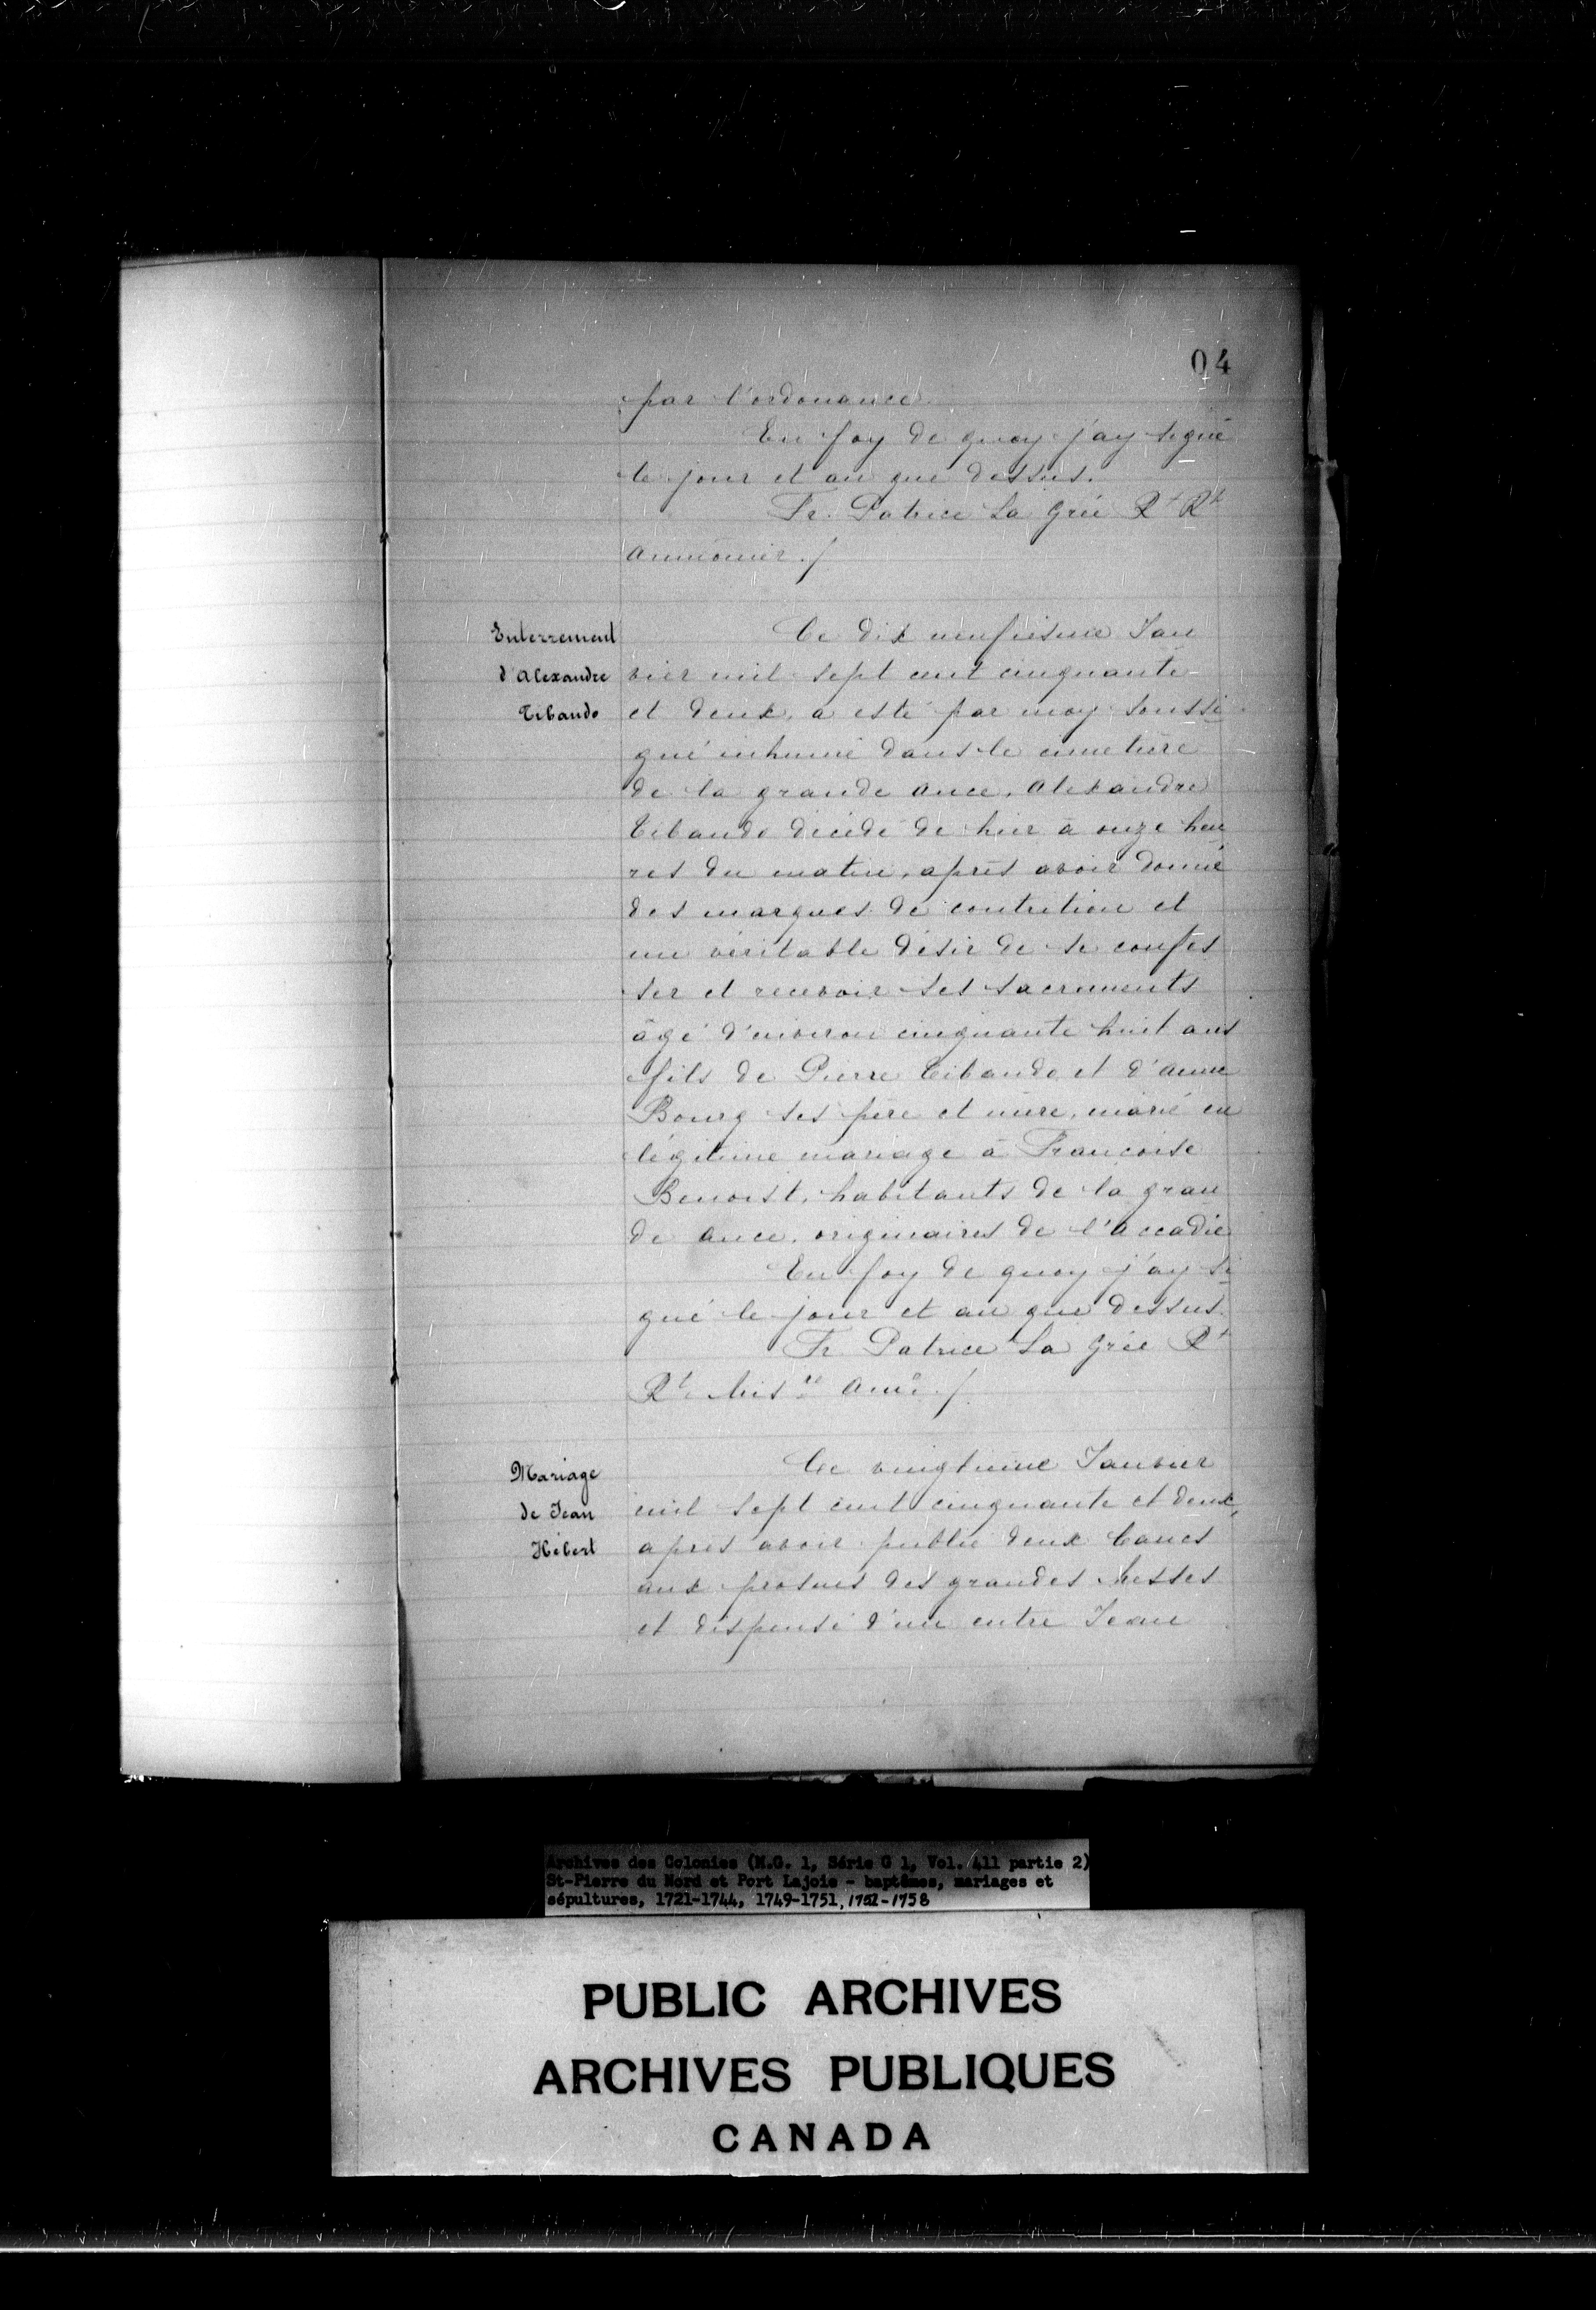 04
par l'ordonance.
En foy de quoy j'ay signé
le jour et an que dessus.
Fr. Patrice La Grée Rt Rt
aumônier ./
Enterrement
d'Alexandre
Tibaudo
Ce dix neufiesme Jan
vier mil sept cent cinquante
et deux, a esté par moy soussi
gné inhumé dans le cimetiere
de la grande ance, Alexandre
Tibaudo décédé de hier à onze heu
res du matin, après avoir donné
des marques de contrition et
un véritable désir de se confes
ser et recevoir ses sacrements
âgé d'environ cinquante huit ans
fils de Pierre Tibaudo et d'anne
Bourg ses père et mère, marié en
légitime mariage à Françoise
Benoist, habitants de la gran
de ance, originaires de l'accadie
En foy de quoy j'ay si
gné le jour et an que dessus.
Fr. Patrice La Grée Rt
Rt. Miss re Aum r ./
Mariage
de Jean
Hébert
Ce vingtieme Janvier
mil sept cent cinquante et deux,
après avoir publié deux bancs
aux prosnes des grandes Messes
et dispensé d'un entre Jean
Archives des Colonies (M.G. 1, Série G 1, Vol. 411 partie 2)
St-Pierre du Nord et Port Lajoie - baptêmes, mariages et
sépultures, 1721-1744, 1749-1751, 1752-1758
PUBLIC ARCHIVES
ARCHIVES PUBLIQUES
CANADA